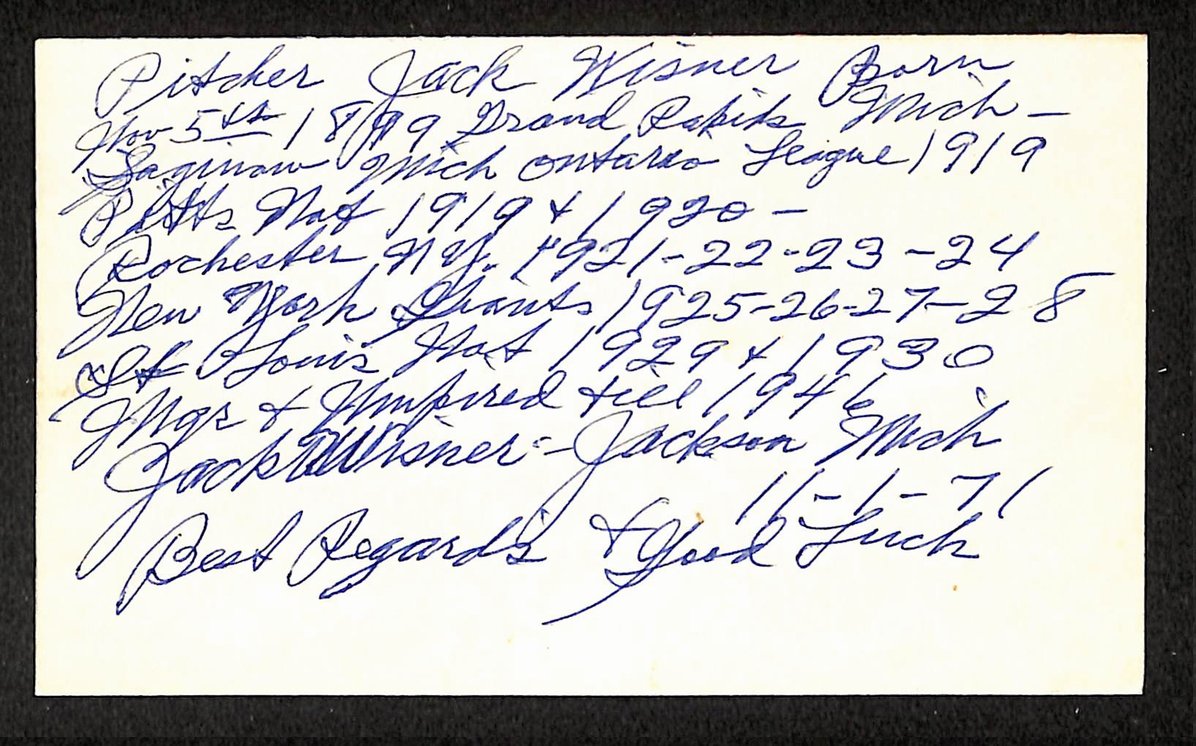 Pitcher Jack Wisner Born
Nov 5th 1899 Grand Rapids Mich -
Saginaw Mich Ontario League 1919
Pitts Nat 1919 & 1920 -
Rochester N.Y. 1921-22-23-24
New York Giants 1925-26-27-28
St Louis Nat 1929 & 1930
Mgr & Umpired till 1946
Jack Wisner - Jackson Mich
11-1-71
Best Regards & Good Luck